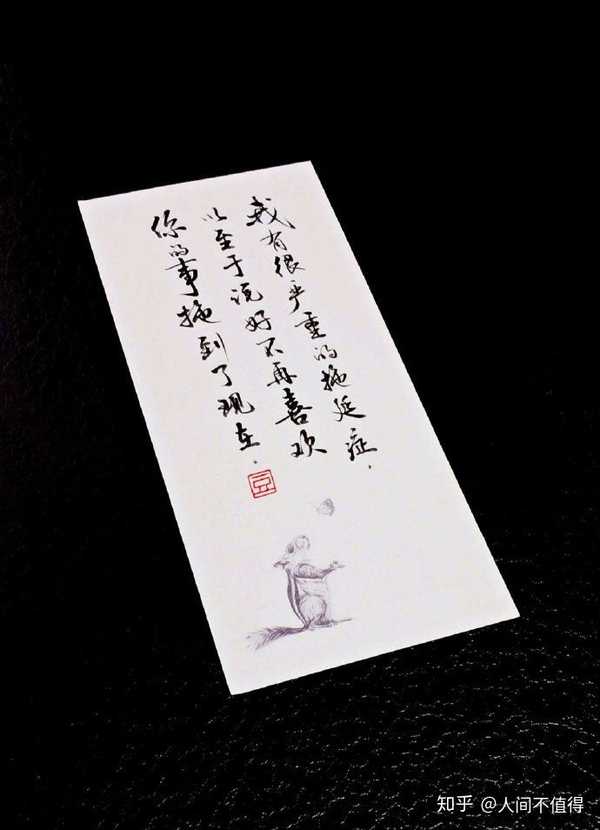 我有很严重的拖延症.
以至于说好不再喜欢
你的事拖到了现在.
豆
知乎 @人间不值得